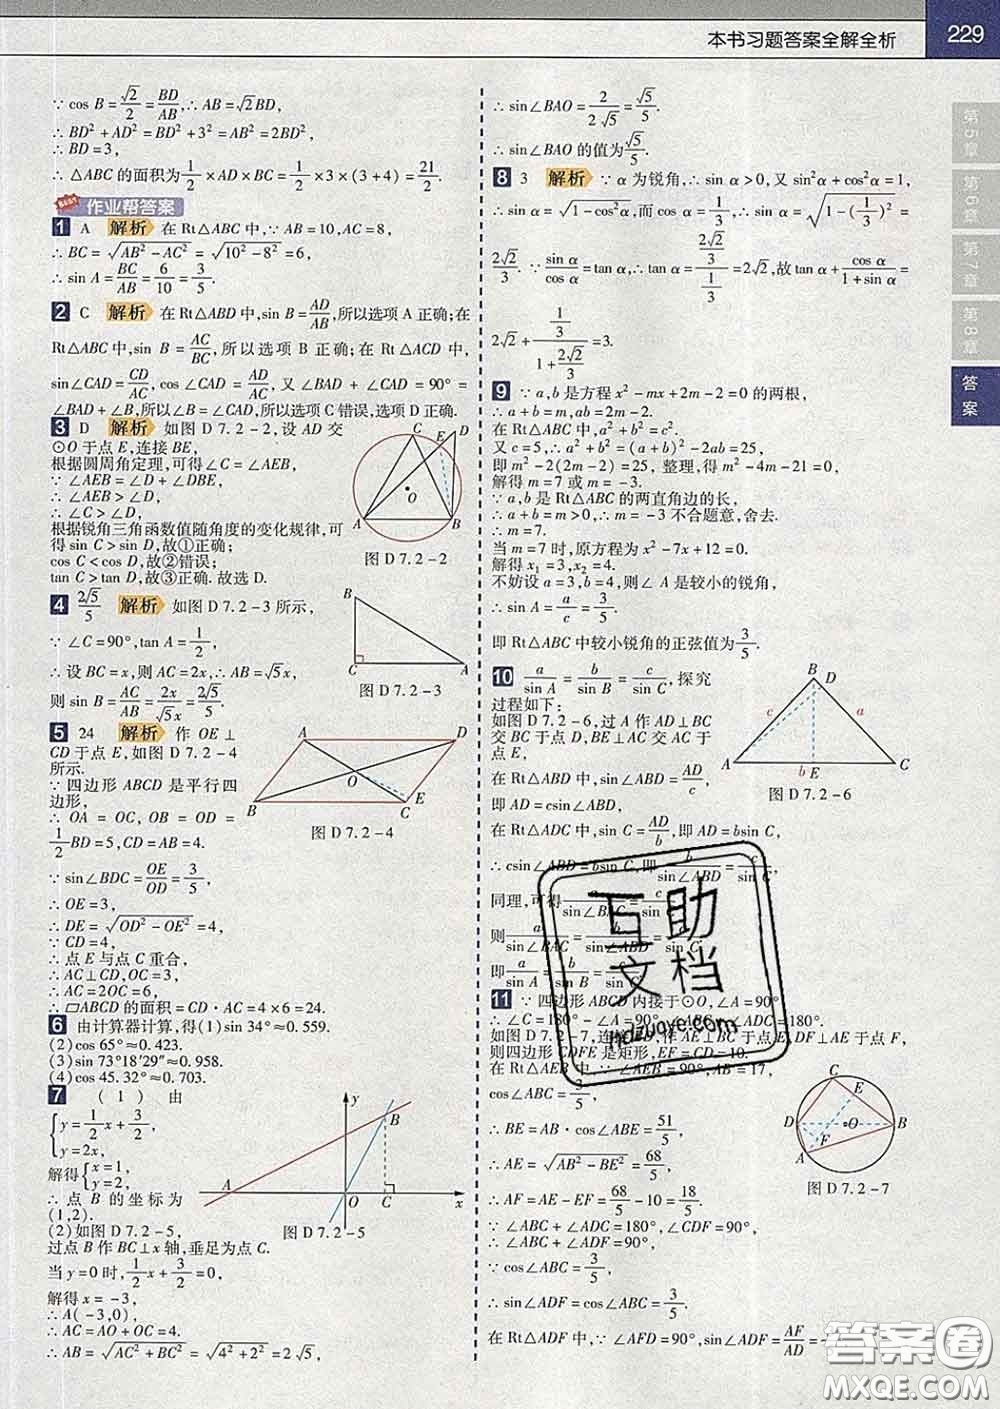 本书习题答案全解全析
229
∵ cos B = √2/2 = BD/AB, ∴ AB = √2BD,
∴ BD² + AD² = BD² + 3² = AB² = 2BD²,
∴ BD = 3,
∴ △ABC 的面积为 1/2 × AD × BC = 1/2 × 3 × (3 + 4) = 21/2.
作业帮答案
1 A 解析 在 Rt△ABC 中, ∵ AB = 10, AC = 8,
∴ BC = √(AB² − AC²) = √(10² − 8²) = 6,
∴ sin A = BC/AB = 6/10 = 3/5.
2 C 解析 在 Rt△ABD 中, sin B = AD/AB, 所以选项 A 正确; 在
Rt△ABC 中, sin B = AC/BC, 所以选项 B 正确; 在 Rt△ACD 中,
sin∠CAD = CD/AC, cos∠CAD = AD/AC, 又 ∠BAD + ∠CAD = 90° =
∠BAD + ∠B, 所以∠B = ∠CAD, 所以选项 C 错误, 选项 D 正确.
3 D 解析 如图 D 7.2-2, 设 AD 交
⊙O 于点 E, 连接 BE,
根据圆周角定理, 可得∠C = ∠AEB,
∵ ∠AEB = ∠D + ∠DBE,
∴ ∠AEB > ∠D,
∴ ∠C > ∠D,
根据锐角三角函数值随角度的变化规律, 可
得 sin C > sin D, 故①正确;
cos C < cos D, 故②错误;
tan C > tan D, 故③正确. 故选 D.
C E D
O
A B
图 D 7.2-2
4 2√5/5 解析 如图 D 7.2-3 所示,
∵ ∠C = 90°, tan A = 1/2,
∴ 设 BC = x, 则 AC = 2x, ∴ AB = √5x,
则 sin B = AC/AB = 2x/√5x = 2√5/5.
B
C A
图 D 7.2-3
5 24 解析 作 OE ⊥
CD 于点 E, 如图 D 7.2-4
所示.
∵ 四边形 ABCD 是平行四
边形,
∴ OA = OC, OB = OD =
1/2 BD = 5, CD = AB = 4.
∵ sin∠BDC = OE/OD = 3/5,
∴ OE = 3,
∴ DE = √(OD² − OE²) = 4,
∵ CD = 4,
∴ 点 E 与点 C 重合,
∴ AC ⊥ CD, OC = 3,
∴ AC = 2OC = 6,
∴ ▱ABCD 的面积 = CD · AC = 4 × 6 = 24.
A D
O
E
B C
图 D 7.2-4
6 由计算器计算, 得(1) sin 34° ≈ 0.559.
(2) cos 65° ≈ 0.423.
(3) sin 73°18′29″ ≈ 0.958.
(4) cos 45.32° ≈ 0.703.
7 (1) 由
{ y = 1/2 x + 3/2,
y = 2x,
解得{ x = 1,
y = 2,
∴ 点 B 的坐标为
(1,2).
(2) 如图 D 7.2-5,
过点 B 作 BC ⊥ x 轴, 垂足为点 C.
当 y = 0 时, 1/2 x + 3/2 = 0,
解得 x = −3,
∴ A(−3,0),
∴ AC = AO + OC = 4,
∴ AB = √(AC² + BC²) = √(4² + 2²) = 2√5,
y
B
A O C x
图 D 7.2-5
∴ sin∠BAO = 2/2√5 = √5/5.
∴ sin∠BAO 的值为 √5/5.
8 3 解析 ∵ α 为锐角, ∴ sin α > 0, 又 sin²α + cos²α = 1,
∴ sin α = √(1 − cos²α), 而 cos α = 1/3, ∴ sin α = √(1 − (1/3)²) =
2√2/3. ∵ sin α/cos α = tan α, ∴ tan α = (2√2/3)/(1/3) = 2√2, 故 tan α + cos α/(1 + sin α) =
2√2 + (1/3)/(1 + 2√2/3) = 3.
9 ∵ a, b 是方程 x² − mx + 2m − 2 = 0 的两根,
∴ a + b = m, ab = 2m − 2.
在 Rt△ABC 中, a² + b² = c².
又 c = 5, ∴ a² + b² = (a + b)² − 2ab = 25,
即 m² − 2(2m − 2) = 25, 整理, 得 m² − 4m − 21 = 0,
解得 m = 7 或 m = −3.
∵ a, b 是 Rt△ABC 的两直角边的长,
∴ a + b = m > 0, ∴ m = −3 不合题意, 舍去.
∴ m = 7.
当 m = 7 时, 原方程为 x² − 7x + 12 = 0.
解得 x₁ = 3, x₂ = 4.
不妨设 a = 3, b = 4, ∠A 是较小的锐角,
∴ sin A = a/c = 3/5.
即 Rt△ABC 中较小锐角的正弦值为 3/5.
10 a/sin A = b/sin B = c/sin C, 探究
过程如下:
如图 D 7.2-6, 过 A 作 AD ⊥ BC
交 BC 于点 D, BE ⊥ AC 交 AC 于
点 E,
在 Rt△ABD 中, sin∠ABD = AD/c,
即 AD = csin∠ABD,
在 Rt△ADC 中, sin C = AD/b, 即 AD = bsin C,
∴ csin∠ABD = bsin C, 即 b/sin∠ABD = c/sin C,
同理, 可得 a/sin∠BAC = c/sin C,
则 a/sin∠BAC = b/sin∠ABD = c/sin C,
即 a/sin A = b/sin B = c/sin C.
B D
c a
A b E C
图 D 7.2-6
11 ∵ 四边形 ABCD 内接于⊙O, ∠A = 90°,
∴ ∠C = 180° − ∠A = 90°, ∠ABC + ∠ADC = 180°.
如图 D 7.2-7, 连接BD, 作 AE ⊥ BC 于点 E, DF ⊥ AE 于点 F,
则四边形 CDFE 是矩形, EF = CD = 10.
在 Rt△AEB 中, ∵ ∠AEB = 90°, AB = 17,
cos∠ABC = 3/5,
∴ BE = AB · cos∠ABE = 51/5,
∴ AE = √(AB² − BE²) = 68/5,
∴ AF = AE − EF = 68/5 − 10 = 18/5.
∵ ∠ABC + ∠ADC = 180°, ∠CDF = 90°,
∴ ∠ABC + ∠ADF = 90°,
∵ cos∠ABC = 3/5,
∴ sin∠ADF = cos∠ABC = 3/5.
在 Rt△ADF 中, ∵ ∠AFD = 90°, sin∠ADF = AF/AD =
C E
D O B
F
A
图 D 7.2-7
第5章
第6章
第7章
第8章
答案
互助
文档
hdzuoye.com
答案圈
MXQE.COM